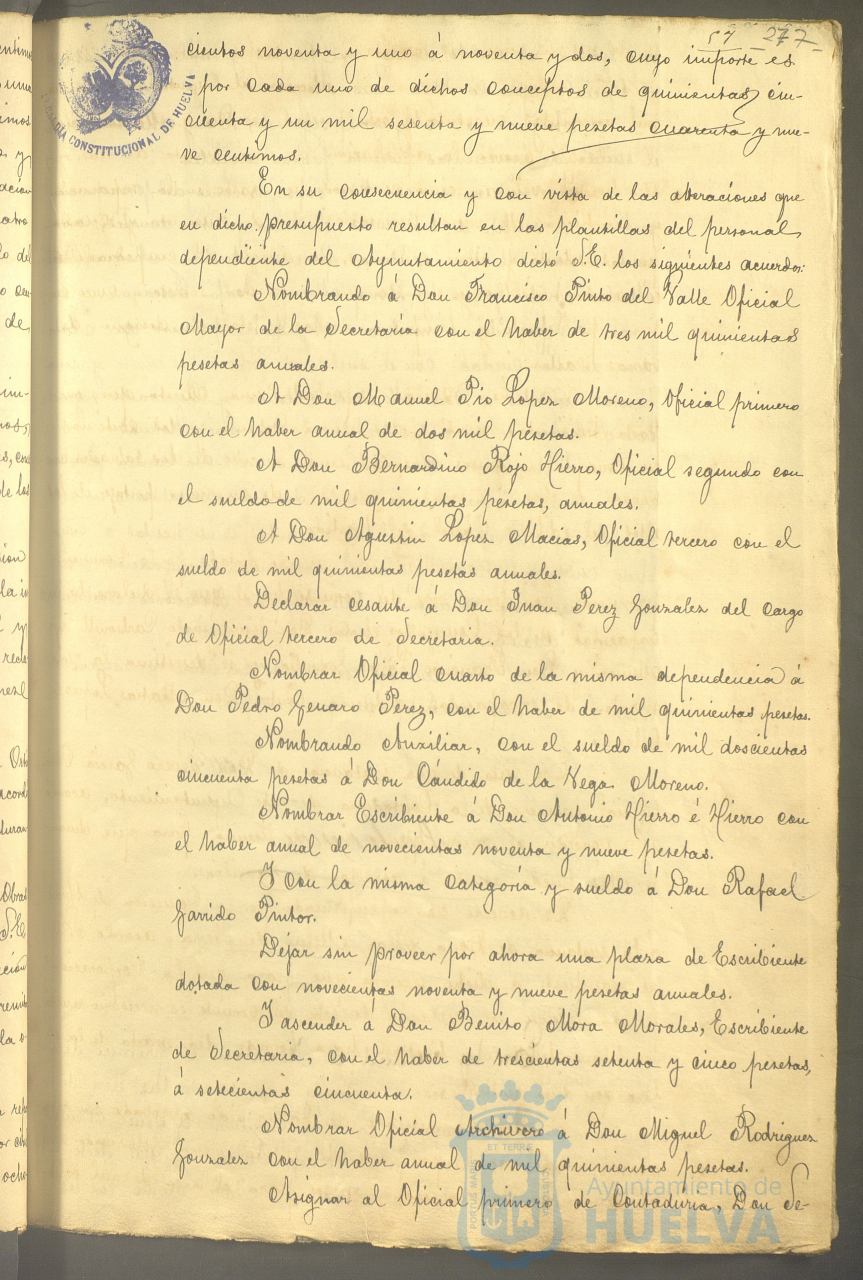 57 277
cientos noventa y uno á noventa y dos, cuyo importe es
por cada uno de dichos conceptos de quinientas cin-
cuenta y un mil sesenta y nueve pesetas cuarenta y nue-
ve centimos.
En su consecuencia y con vista de las alteraciones que
en dicho presupuesto resultan en las plantillas del personal
dependiente del Ayuntamiento dictó S.E. los siguientes acuerdos:
Nombrando á Don Francisco Pinto del Valle Oficial
Mayor de la Secretaría con el haber de tres mil quinientas
pesetas anuales.
A Don Manuel Pio Lopez Moreno, Oficial primero
con el haber anual de dos mil pesetas.
A Don Bernardino Rojo Hierro, Oficial segundo con
el sueldo de mil quinientas pesetas, anuales.
A Don Agustin Lopez Macias, Oficial tercero con el
sueldo de mil quinientas pesetas anuales.
Declarar cesante á Don Juan Perez Gonzalez del cargo
de Oficial tercero de Secretaria.
Nombrar Oficial cuarto de la misma dependencia á
Don Pedro Genaro Perez, con el haber de mil quinientas pesetas.
Nombrando Auxiliar, con el sueldo de mil doscientas
cincuenta pesetas á Don Cándido de la Vega Moreno.
Nombrar Escribiente á Don Antonio Hierro é Hierro con
el haber anual de novecientas noventa y nueve pesetas.
Y con la misma categoría y sueldo á Don Rafael
Garrido Pintor.
Dejar sin proveer por ahora una plaza de Escribiente
dotada con novecientas noventa y nueve pesetas anuales.
Y ascender á Don Benito Mora Morales, Escribiente
de Secretaria, con el haber de trescientas setenta y cinco pesetas,
á setecientas cincuenta.
Nombrar Oficial Archivero á Don Miguel Rodriguez
Gonzalez con el haber anual de mil quinientas pesetas.
Asignar al Oficial primero de Contaduria, Don Se-
CONSTITUCIONAL DE HUELVA
Ayuntamiento de
HUELVA